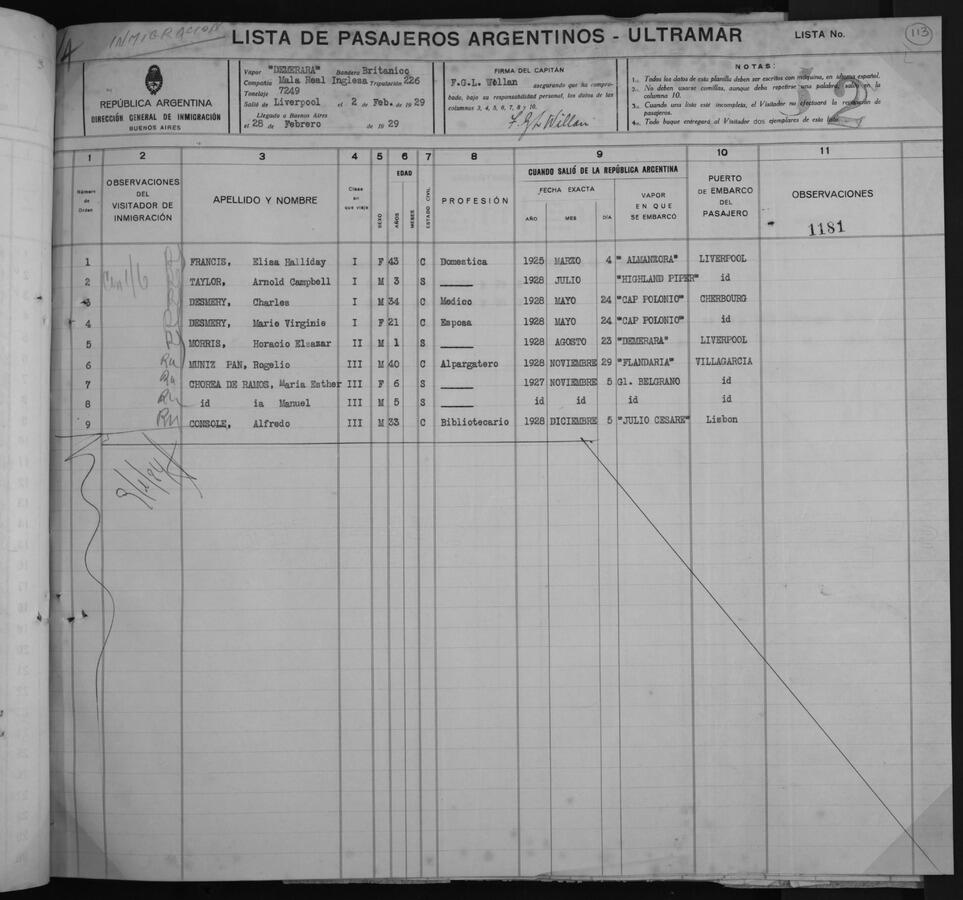 INMIGRACION
LISTA DE PASAJEROS ARGENTINOS - ULTRAMAR
LISTA No.
113
REPÚBLICA ARGENTINA
DIRECCIÓN GENERAL DE INMIGRACIÓN
BUENOS AIRES
Vapor "DEMERARA" Bandera Britanico
Compañía Mala Real Inglesa Tripulación 226
Tonelaje 7249
Salió de Liverpool el 2 de Feb. de 19 29
Llegado a Buenos Aires
el 28 de Febrero de 19 29
FIRMA DEL CAPITÁN
F.G.L. Wellan asegurando que ha compro-
bado, bajo su responsabilidad personal, los datos de las
columnas 3, 4, 5, 6, 7, 8 y 10.
NOTAS:
1.. Todos los datos de esta planilla deben ser escritos con máquina, en idioma español.
2.. No deben usarse comillas, aunque deba repetirse una palabra, salvo en la columna 10.
3.. Cuando una lista esté incompleta, el Visitador no efectuará la recepción de pasajeros.
4.. Todo buque entregará al Visitador dos ejemplares de esta lista.
32
1 2 3 4 5 6 7 8 9 10 11
Número de Orden
OBSERVACIONES DEL VISITADOR DE INMIGRACIÓN
APELLIDO Y NOMBRE
Clase en que viaja
SEXO
EDAD
AÑOS
MESES
ESTADO CIVIL
PROFESIÓN
CUANDO SALIÓ DE LA REPÚBLICA ARGENTINA
FECHA EXACTA
AÑO MES DÍA
VAPOR EN QUE SE EMBARCÓ
PUERTO DE EMBARCO DEL PASAJERO
OBSERVACIONES
1181
1 FRANCIS, Elisa Halliday I F 43 C Domestica 1925 MARZO 4 " ALMANZORA" LIVERPOOL
2 TAYLOR, Arnold Campbell I M 3 S 1928 JULIO "HIGHLAND PIPER" id
3 DESMERY, Charles I M 34 C Medico 1928 MAYO 24 "CAP POLONIO" CHERBOURG
4 DESMERY, Marie Virginie I F 21 C Esposa 1928 MAYO 24 "CAP POLONIO" id
5 MORRIS, Horacio Eleazar II M 1 S 1928 AGOSTO 23 "DEMERARA" LIVERPOOL
6 MUNIZ PAN, Rogelio III M 40 C Alpargatero 1928 NOVIEMBRE 29 "FLANDARIA" VILLAGARCIA
7 CHOREA DE RAMOS, Maria Esther III F 6 S 1927 NOVIEMBRE 5 Gl. BELGRANO id
8 id ia Manuel III M 5 S id id id id id
9 CONSOLE, Alfredo III M 33 C Bibliotecario 1928 DICIEMBRE 5 "JULIO CESARE" Lisbon